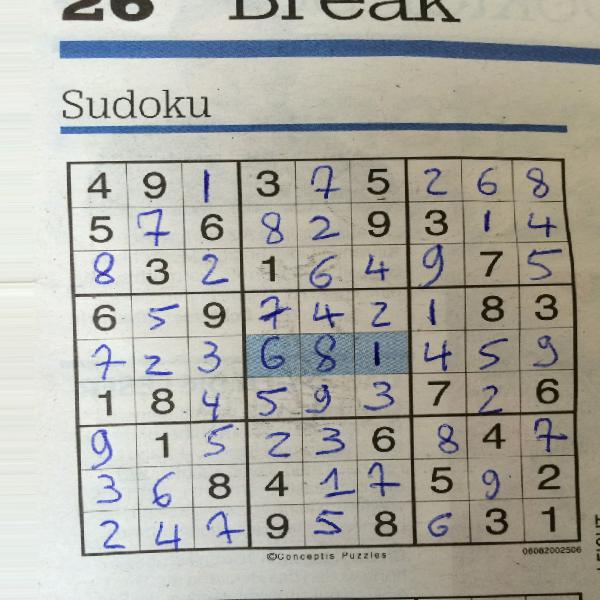 26 Break
Sudoku
4 9 1 3 7 5 2 6 8
5 7 6 8 2 9 3 1 4
8 3 2 1 6 4 9 7 5
6 5 9 7 4 2 1 8 3
7 2 3 6 8 1 4 5 9
1 8 4 5 9 3 7 2 6
9 1 5 2 3 6 8 4 7
3 6 8 4 1 7 5 9 2
2 4 7 9 5 8 6 3 1
©Conceptis Puzzles 06082002506